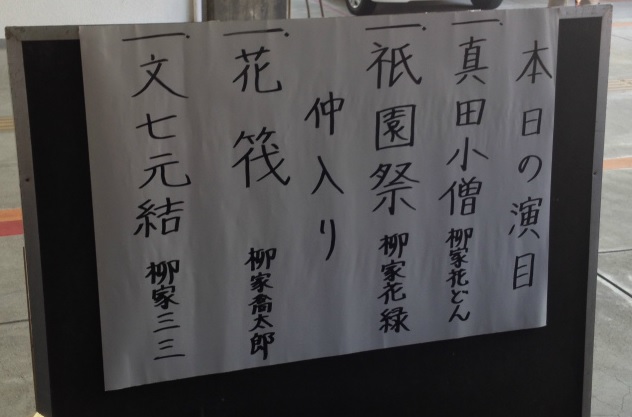 本日の演目
一. 真田小僧 柳家花どん
一. 祇園祭 柳家花緑
仲入り
一. 花筏 柳家喬太郎
一. 文七元結 柳家三三